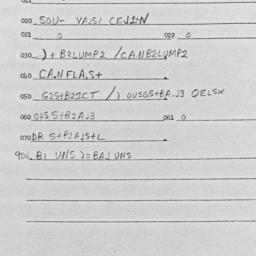 020 SOU- VAJSI CEJI-N
021 0 022 0
030 ) + B2LUMP2 / CANB2LUMP2
040 CANFLAS+
050 G2S+B2ICT / ) OUSGS+BA.J3 OELSW
060 OUSS+B2AJ3 061 0
070 DR S+P2AJS+L
900 BI UNS )=BAJ UNS